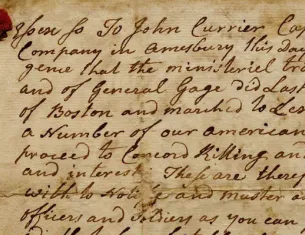 Essex ss To John Currier Cap
Company in Amesbury this day
gence that the ministeriel tro
and of General Gage did Last
of Boston and marched to Lex
a Number of our american
proceed to Concord Killing an
and interest These are theref
with to Notice and muster as
officers and Soldiers as you can